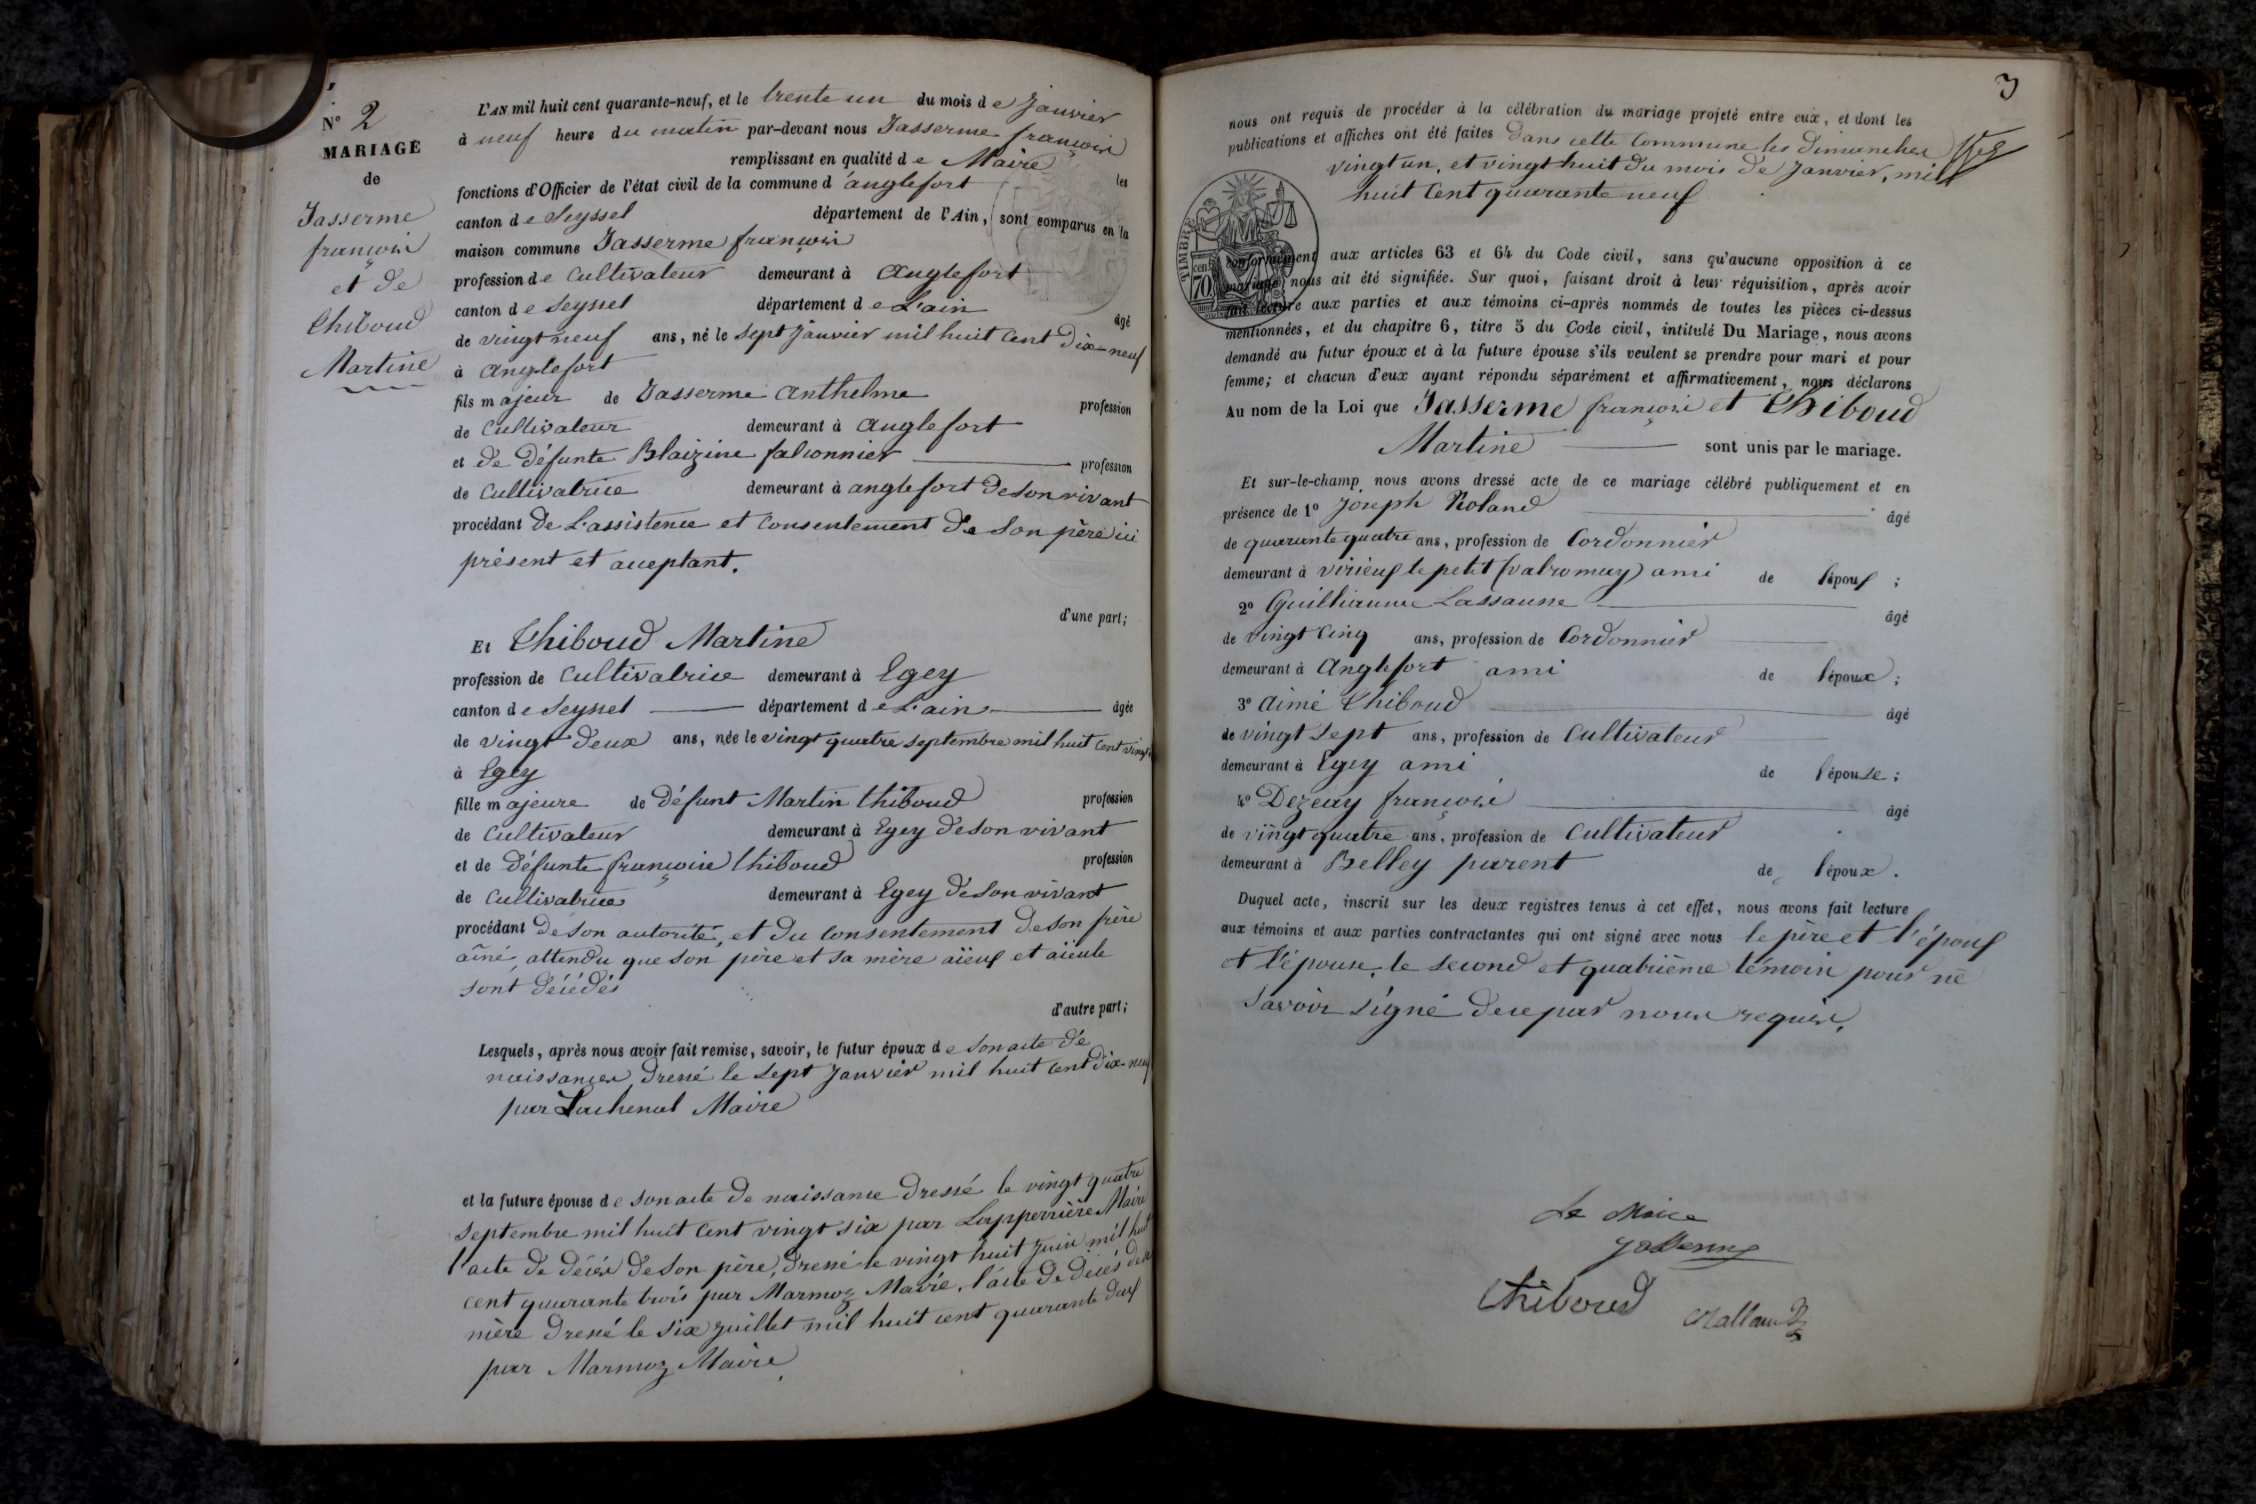 N° 2
MARIAGE
de
Jasserme
françois
et de
Thiboud
Martine
L'AN mil huit cent quarante-neuf, et le trente un du mois de Janvier
à neuf heure du matin par-devant nous Jasserme françois
remplissant en qualité de Maire les
fonctions d'Officier de l'état civil de la commune d'anglefort
canton de Seyssel département de l'Ain, sont comparus en la
maison commune Jasserme françois
profession de Cultivateur demeurant à Anglefort
canton de Seyssel département de L'ain âgé
de vingt neuf ans, né le sept Janvier mil huit Cent Dix-neuf
à Anglefort
fils majeur de Jasserme Anthelme profession
de Cultivateur demeurant à Anglefort
et de défunte Blaizine falconnier profession
de Cultivatrice demeurant à anglefort de son vivant
procédant de L'assistence et Consentement de Son père ici
présent et acceptant.
d'une part;
Et Thiboud Martine
profession de Cultivatrice demeurant à Egey
canton de Seyssel département de L'ain âgée
de vingt deux ans, née le vingt quatre septembre mil huit Cent vingt
à Egey
fille majeure de défunt Martin thiboud profession
de Cultivateur demeurant à Egey de son vivant
et de défunte françoise thiboud profession
de Cultivatrice demeurant à Egey de son vivant
procédant de son autorité, et du Consentement de son frère
aîné, attendu que son père et sa mère aïeuf et aïeule
sont décédés
d'autre part;
Lesquels, après nous avoir fait remise, savoir, le futur époux de son acte de
naissances dressé le sept Janvier mil huit Cent dix-neuf
par Lachenal Maire
et la future épouse de son acte de naissance dressé le vingt quatre
septembre mil huit Cent vingt six par Lapperrière Maire
l'acte de décès de son père, dressé le vingt huit Juin mil huit
cent quarante trois par Marmoz Maire, l'acte de décès de sa
mère dressé le six Juillet mil huit cent quarante deux
par Marmoz Maire,
3
nous ont requis de procéder à la célébration du mariage projeté entre eux, et dont les
publications et affiches ont été faites dans cette Commune les dimanches
vingt un, et vingt huit du mois de Janvier, mil
huit Cent quarante neuf
TIMBRE
cent
70
conformément aux articles 63 et 64 du Code civil, sans qu'aucune opposition à ce
mariage nous ait été signifiée. Sur quoi, faisant droit à leur réquisition, après avoir
fait lecture aux parties et aux témoins ci-après nommés de toutes les pièces ci-dessus
mentionnées, et du chapitre 6, titre 5 du Code civil, intitulé Du Mariage, nous avons
demandé au futur époux et à la future épouse s'ils veulent se prendre pour mari et pour
femme; et chacun d'eux ayant répondu séparément et affirmativement, nous déclarons
Au nom de la Loi que Jasserme françois et Thiboud
Martine sont unis par le mariage.
Et sur-le-champ nous avons dressé acte de ce mariage célébré publiquement et en
présence de 1° Joseph Roland âgé
de quarante quatre ans, profession de Cordonnier
demeurant à virieuf le petit (valromay) ami de l'épouf;
2° Guilliaume Lassausse âgé
de vingt Cinq ans, profession de Cordonnier
demeurant à Anglefort ami de l'époux;
3° Aimé Thiboud âgé
de vingt sept ans, profession de Cultivateur
demeurant à Egey ami de l'épouse;
4° Dezeay françois âgé
de vingt quatre ans, profession de Cultivateur
demeurant à Belley parent de l'époux.
Duquel acte, inscrit sur les deux registres tenus à cet effet, nous avons fait lecture
aux témoins et aux parties contractantes qui ont signé avec nous le père et l'épouf
et l'épouse, le second et quatrième témoin pour ne
savoir signé de ce par nous requis,
Le Maire
Jasserme
Thiboud